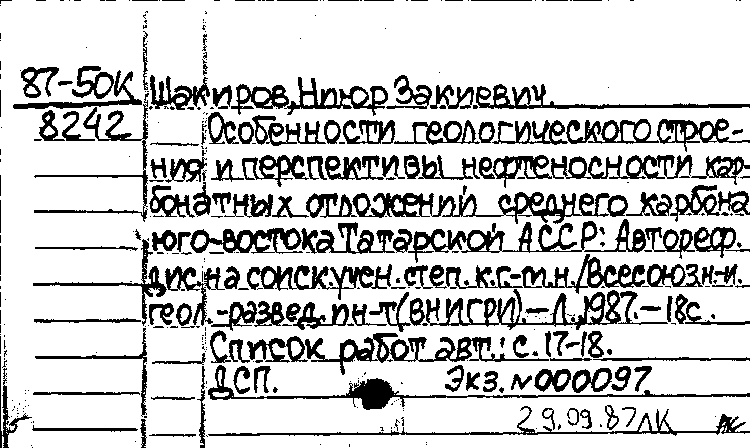 87-50К
8242
Шакиров, Нпюр Закиевич.
Особенности геологического строе-
ния и перспективы нефтеносности кар-
бонатных отложений среднего карбона
юго-востока Татарской АССР: Автореф.
дис. на соиск. учен. степ. к.г.-м.н./Всесоюзн-и.
геол.-развед. ин-т (ВНИГРИ).-Л., 1987.-18с.
Список работ авт.: с. 17-18.
ДСП. Экз. №000097.
29.09.87 ЛК
5